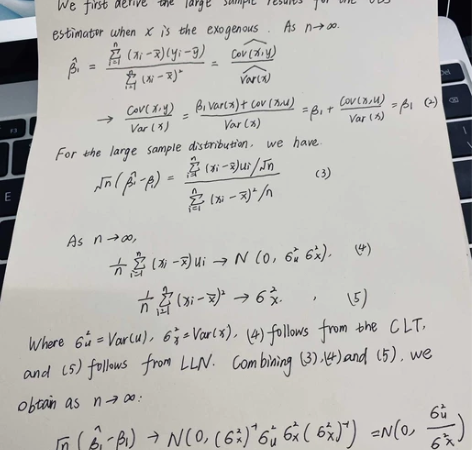 We first derive the large sample results for the OLS
estimator when x is the exogenous. As n→∞.
β̂₁ = Σⁿᵢ₌₁ (xi-x̄)(yi-ȳ) / Σⁿᵢ₌₁ (xi-x̄)² = Cov(x,y)^ / Var(x)^
→ Cov(x,y) / Var(x) = β₁Var(x)+Cov(x,u) / Var(x) = β₁ + Cov(x,u) / Var(x) = β₁ (2)
For the large sample distribution, we have.
√n(β̂₁-β₁) = Σⁿᵢ₌₁ (xi-x̄)ui/√n / Σⁿᵢ₌₁ (xi-x̄)²/n (3)
As n→∞,
1/n Σⁿᵢ₌₁ (xi-x̄)ui → N(0, σ²ᵤ σ²ₓ). (4)
1/n Σⁿᵢ₌₁ (xi-x̄)² → σ²ₓ. , (5)
Where σ²ᵤ = Var(u), σ²ₓ = Var(x), (4) follows from the CLT,
and (5) follows from LLN. Combining (3),(4) and (5), we
obtain as n→∞:
√n(β̂₁-β₁) → N(0, (σ²ₓ)⁻¹σ²ᵤ σ²ₓ(σ²ₓ)⁻¹) = N(0, σ²ᵤ / σ²ₓ)
E